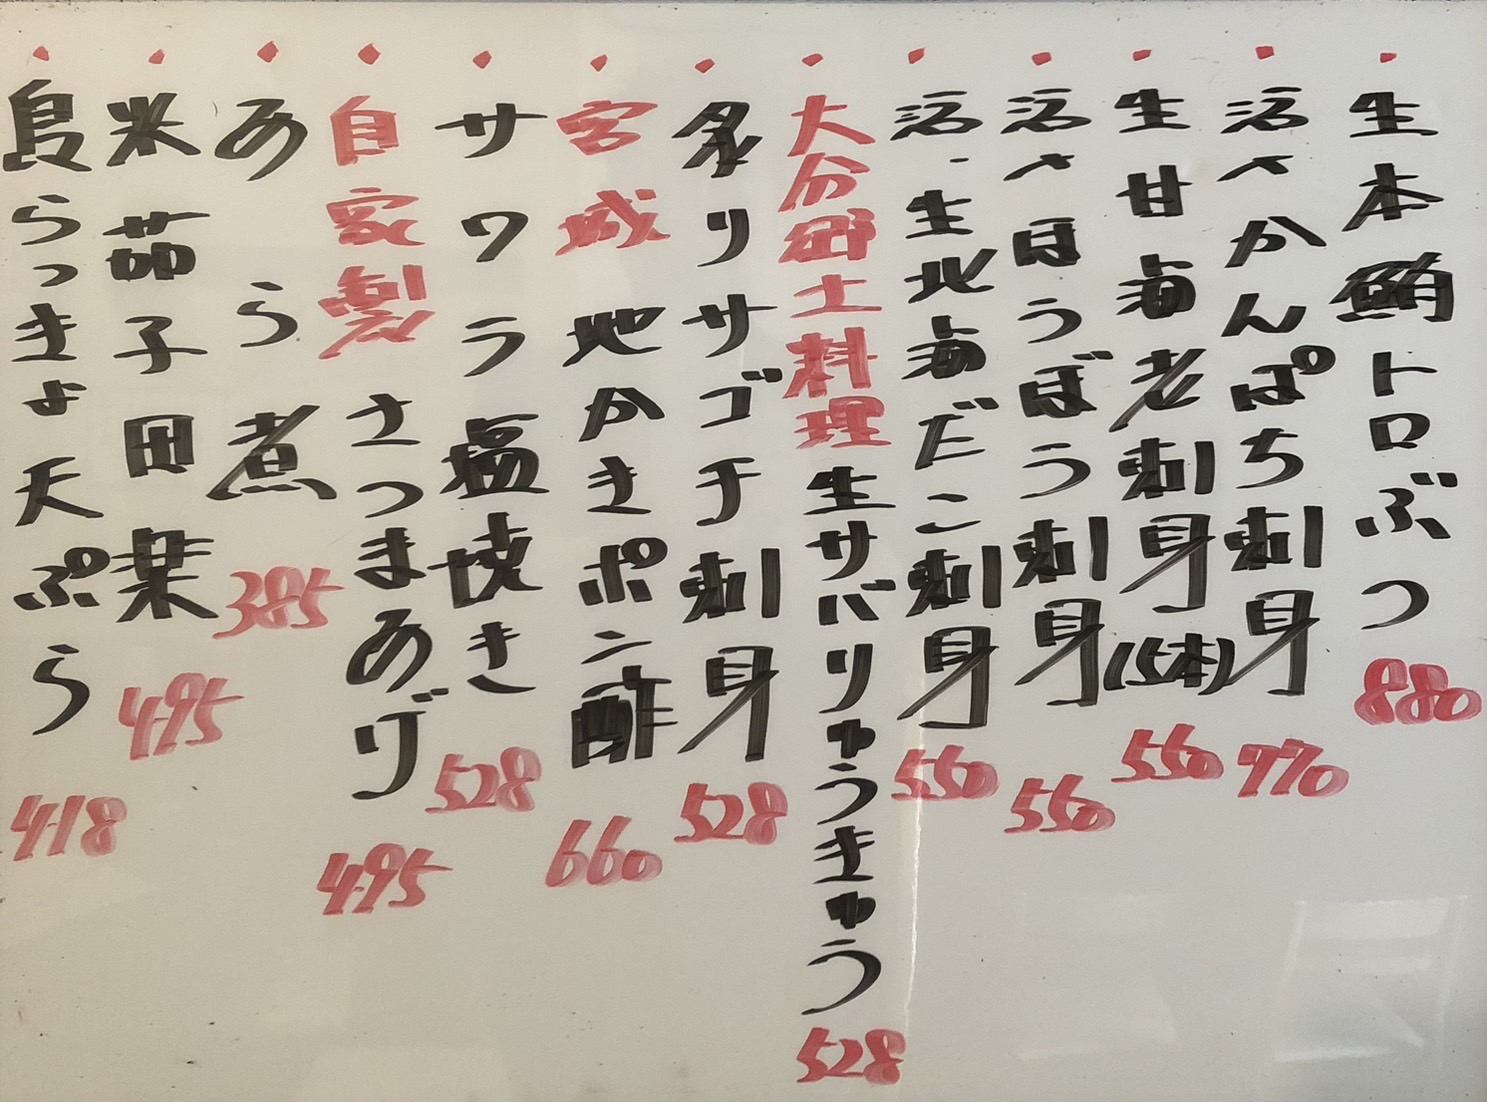 ・生本鮪トロぶつ 880
・活〆かんぱち刺身 770
・生甘海老刺身(5本) 550
・活〆ほうぼう刺身 550
・活・生地海だこ刺身 550
・大分郷土料理 生サバりゅうきゅう 528
・炙りサゴチ刺身 528
・宮城 地かきポン酢 660
・サワラ塩焼き 528
・自家製 さつまあげ 495
・あら煮 385
・米茄子田楽 495
・島らっきょ天ぷら 418